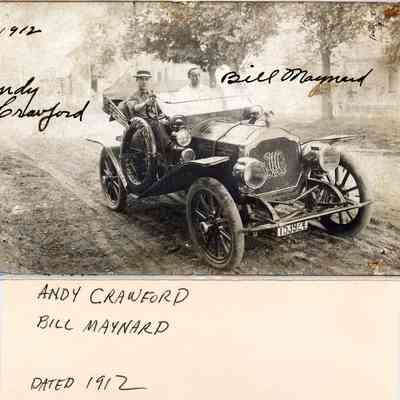 1912
Bill Maynard
Andy
Crawford
ANDY CRAWFORD
BILL MAYNARD
DATED 1912